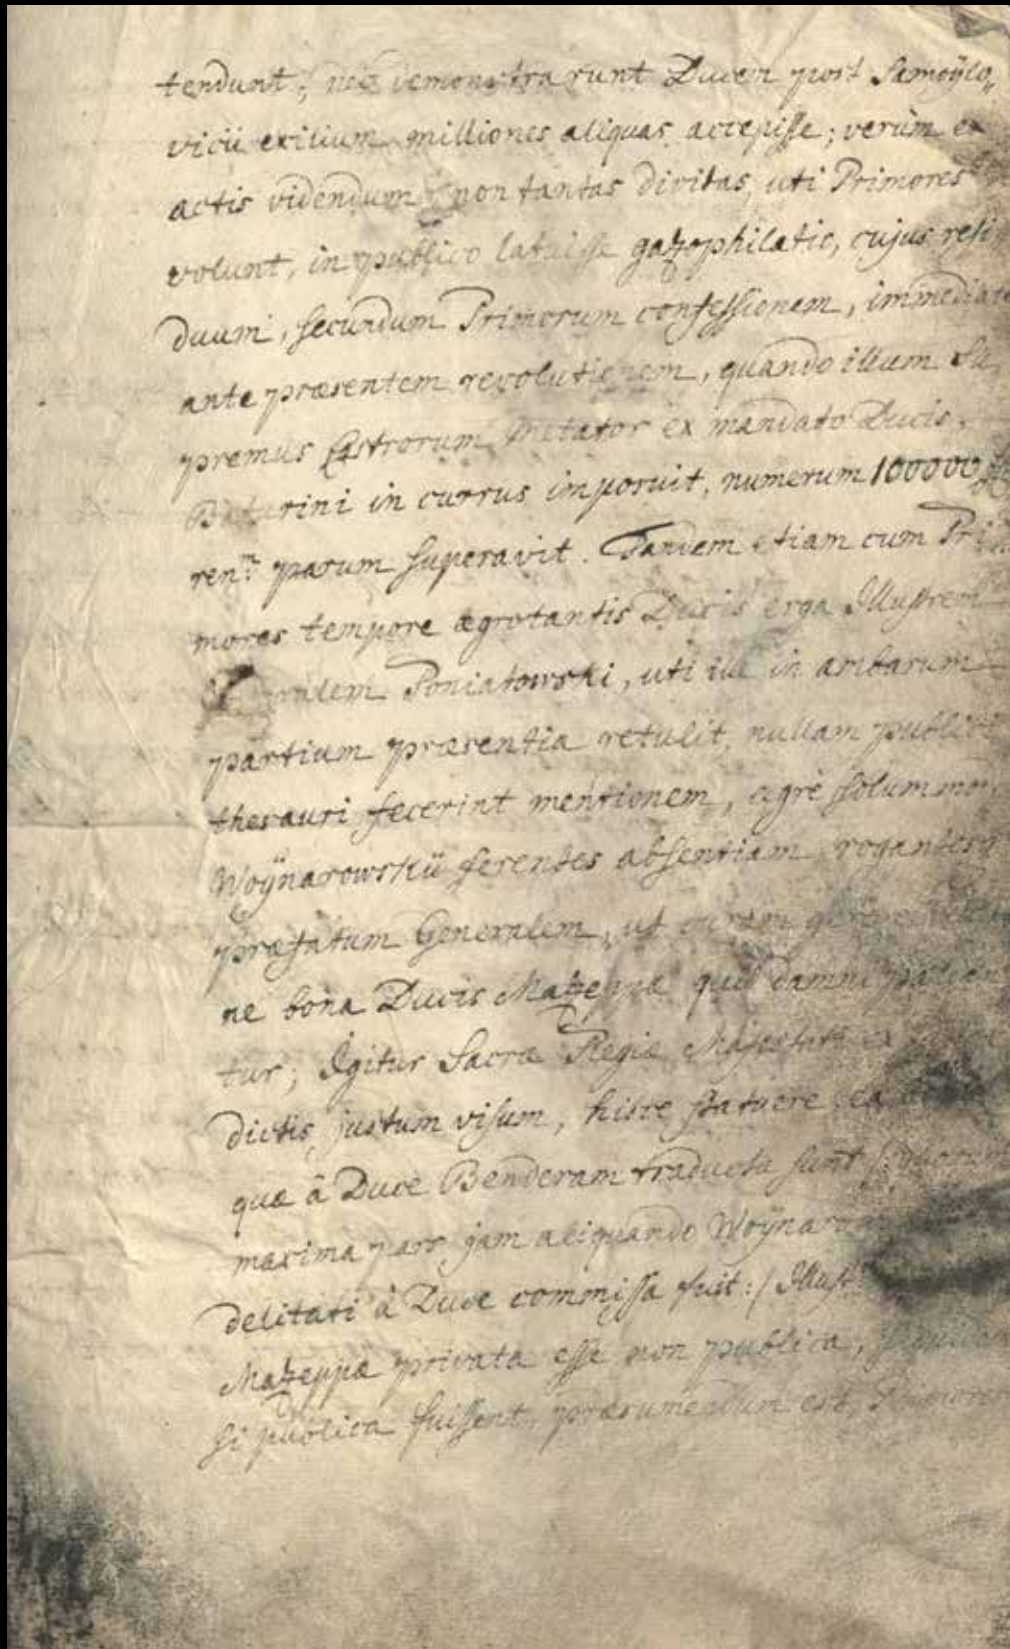 tendunt; nec demonstrarunt Ducem post Samoÿlo„
vicii exilium milliones aliquas accepisse; verùm ex
actis videndum non tantas divitas, uti Primores
volunt, in publico latuisse gazophilatio, cujus resi
duum, secundum Primorum confessionem, immediate
ante præsentem revolutionem, quando illum Su
premus Castrorum Metator ex mandato Ducis,
Baturini in currus imposuit, numerum 100000
ren.m parum superavit. Tandem etiam cum Pri
mores tempore ægrotantis Ducis erga Illustrem
Generalem Poniatowski, uti ille in ambarum
partium præsentia retulit, nullam publici
thesauri fecerint mentionem, ægrè solummodo
Woÿnarowskii ferentes absentiam, rogantesq
præfatum Generalem, ut curam
ne bona Ducis Mazeppæ quid damni patian
tur; Igitur Sacræ Regiæ Majestati ex
dictis justum visum, hisce statuere, ea
quæ â Duce Benderam traducta sunt /: quorum
maxima pars jam aliquando Woÿnarow
delitati â Duce commissa fuit :/ Illust
Mazeppæ privata esse non publica, siquidem
si publica fuissent, præsumendum est, Primores